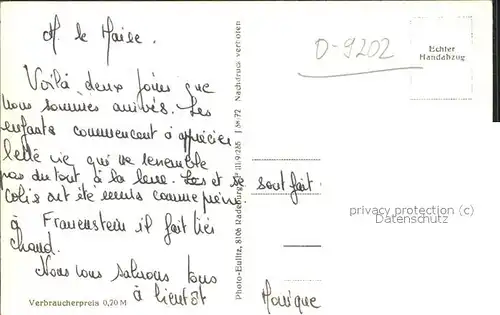 M. le Maire.
Voilà deux jours que
nous sommes arrivés. Les
enfants commencent à apprécier
cette vie qui ne ressemble
pas du tout à la leur. Les
colis ont été remis comme
à Frauenstein il fait très
chaud.
Nous vous saluons tous
à bientôt
Verbraucherpreis 0,20 M
Photo-Eulitz, 8106 Radeburg III/9/285 Nachdruck verboten
D-9202
Echter
Handabzug
sont fait
privacy protection (c)
Datenschutz
Monique